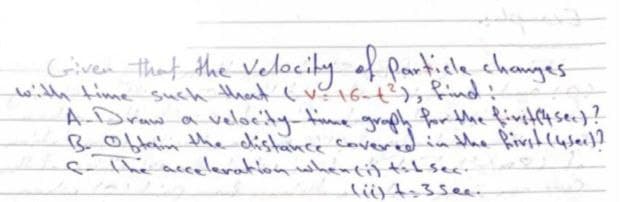 Given that the velocity of Particle changes
with time such that (V = 16-t²), find :
A- Draw a velocity-time graph for the first(4sec)?
B- Obtain the distance covered in the first(4sec)?
C- The acceleration when (i) t= sec.
(ii) t=3sec.